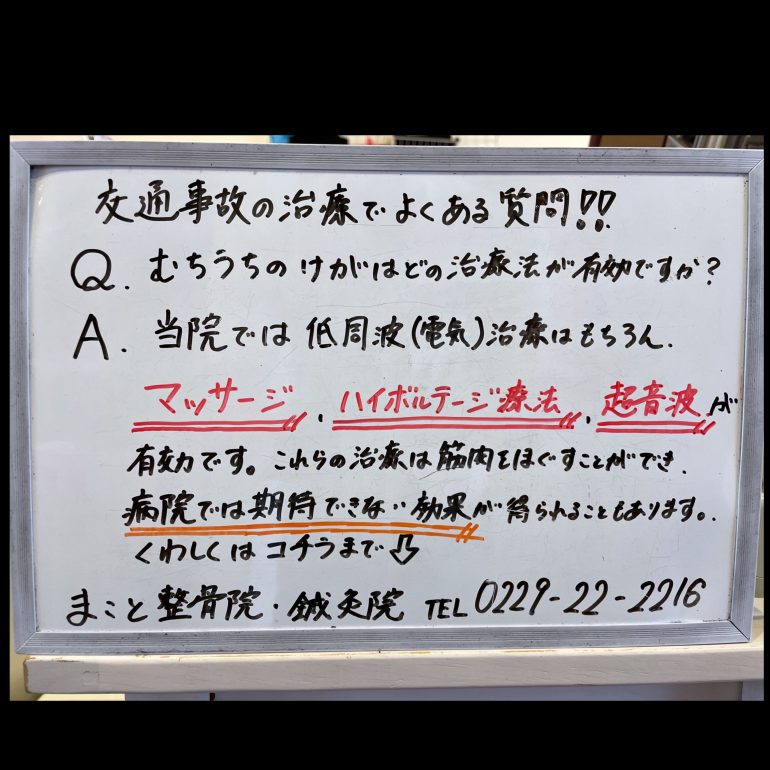 交通事故の治療でよくある質問!!
Q. むちうちのけがはどの治療法が有効ですか?
A. 当院では低周波(電気)治療はもちろん、
マッサージ、ハイボルテージ療法、超音波が
有効です。これらの治療は筋肉をほぐすことができ、
病院では期待できない効果が得られることもあります。
くわしくはコチラまで⇩
まこと整骨院・鍼灸院 TEL 0229-22-2216